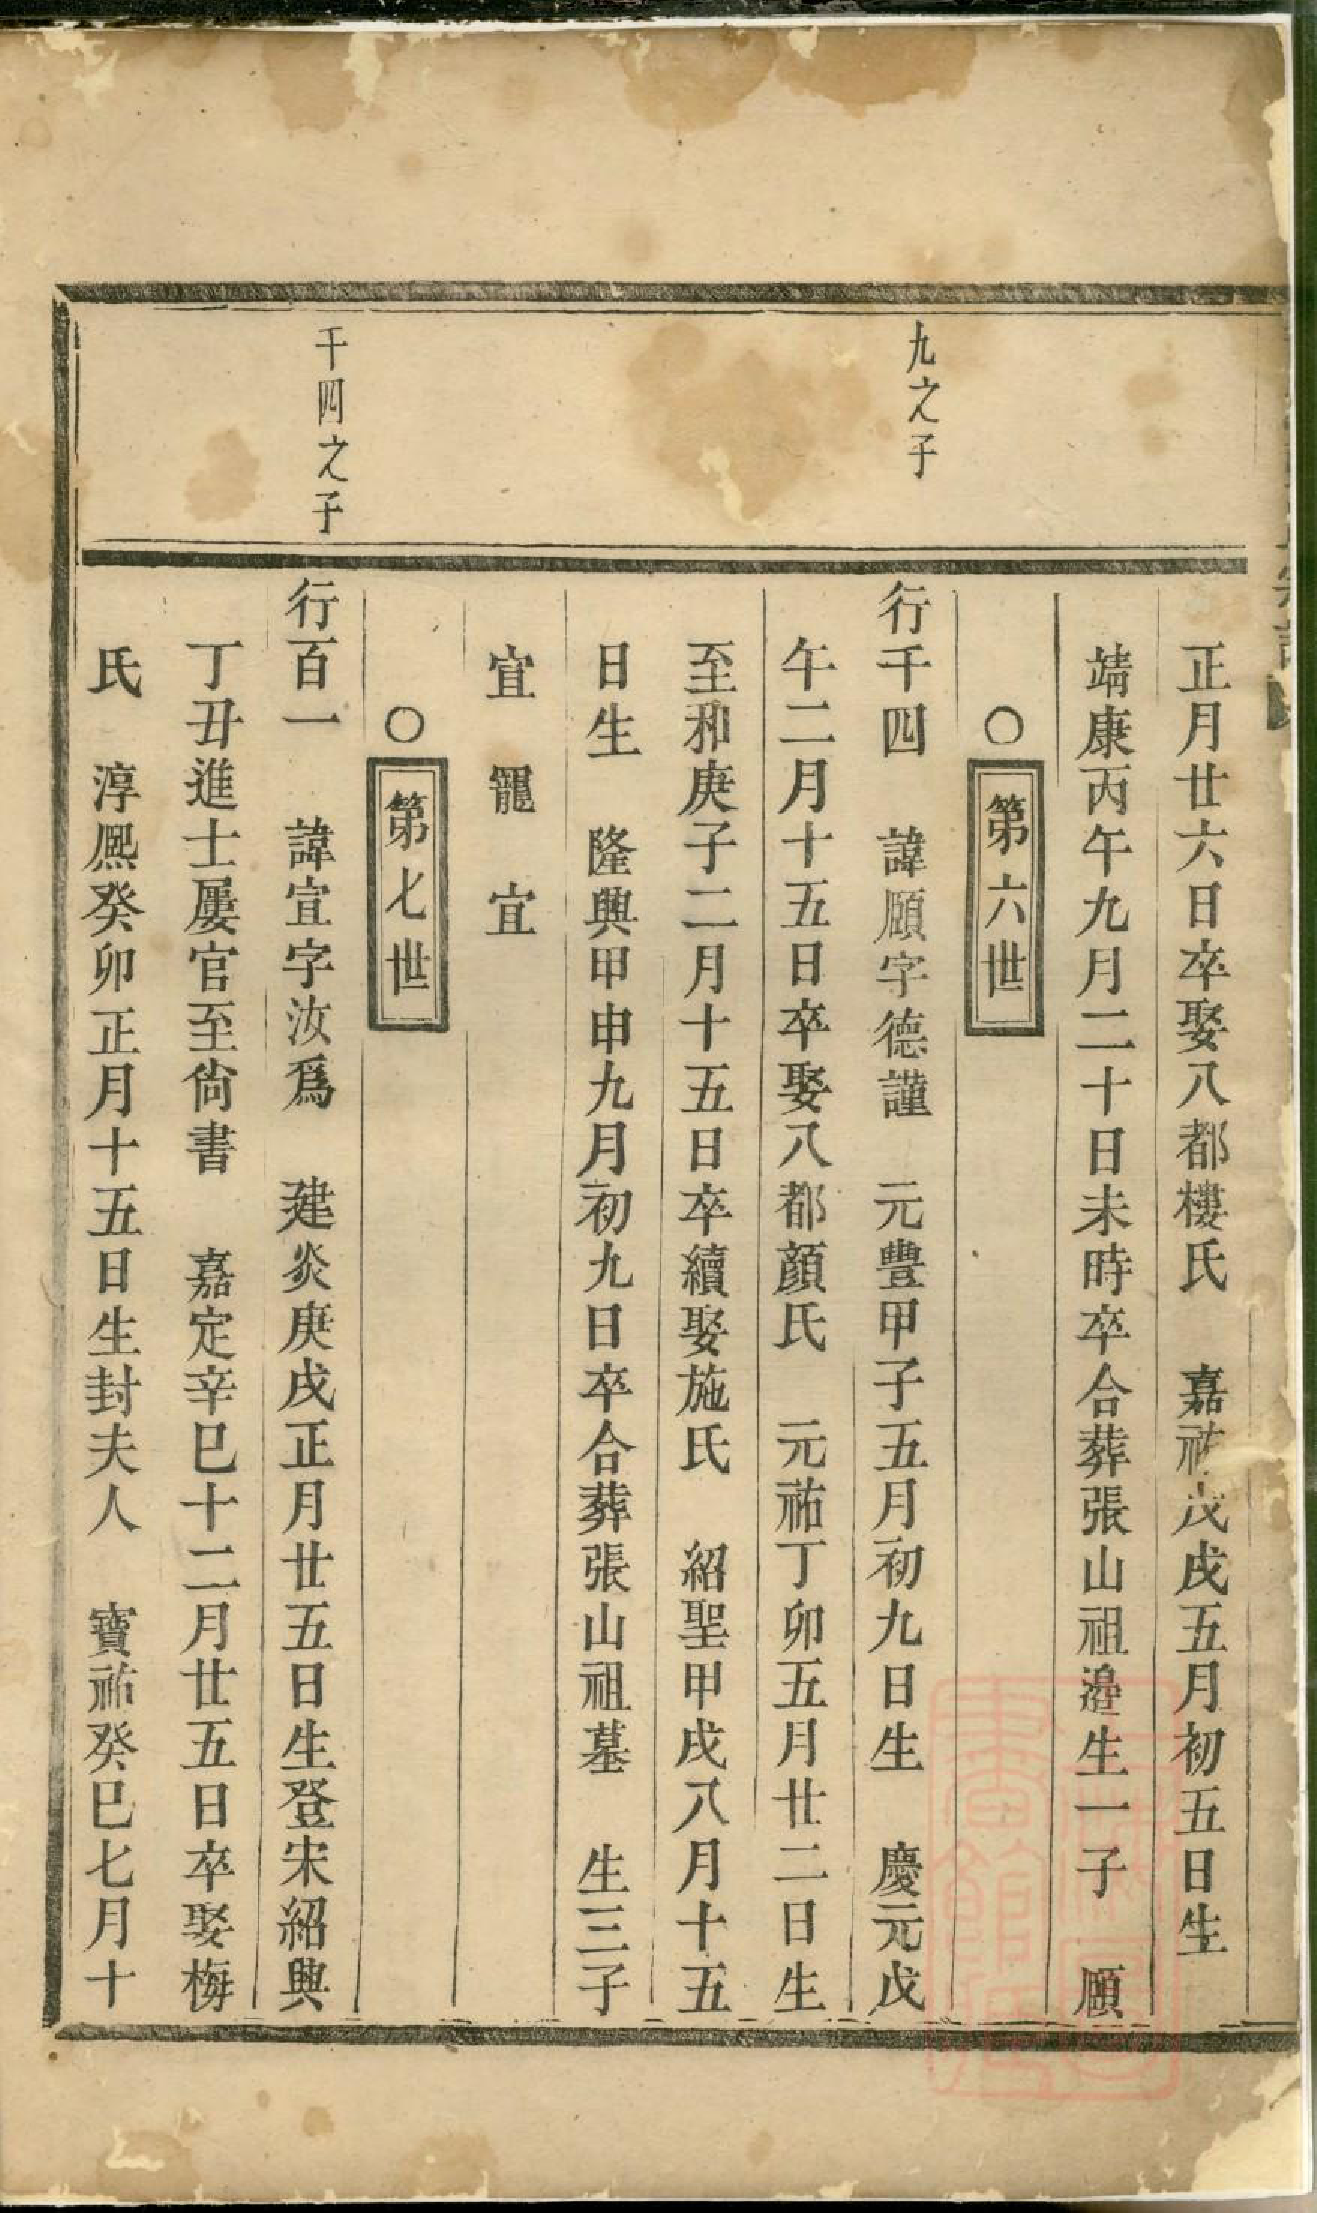 正月廿六日卒娶八都樓氏　嘉祐戊戌五月初五日生
靖康丙午九月二十日未時卒合葬張山祖邉生一子　願
○第六世
九之子
行千四　諱願字德謹　元豐甲子五月初九日生　慶元戊
午二月十五日卒娶八都顔氏　元祐丁卯五月廿二日生
至和庚子二月十五日卒續娶施氏　紹聖甲戌八月十五
日生　隆興甲申九月初九日卒合葬張山祖墓　生三子
宜　寵　宜
○第七世
千四之子
行百一　諱宜字汝爲　建炎庚戌正月廿五日生登宋紹興
丁丑進士屢官至尙書　嘉定辛巳十二月廿五日卒娶梅
氏　淳熈癸卯正月十五日生封夫人　寶祐癸巳七月十